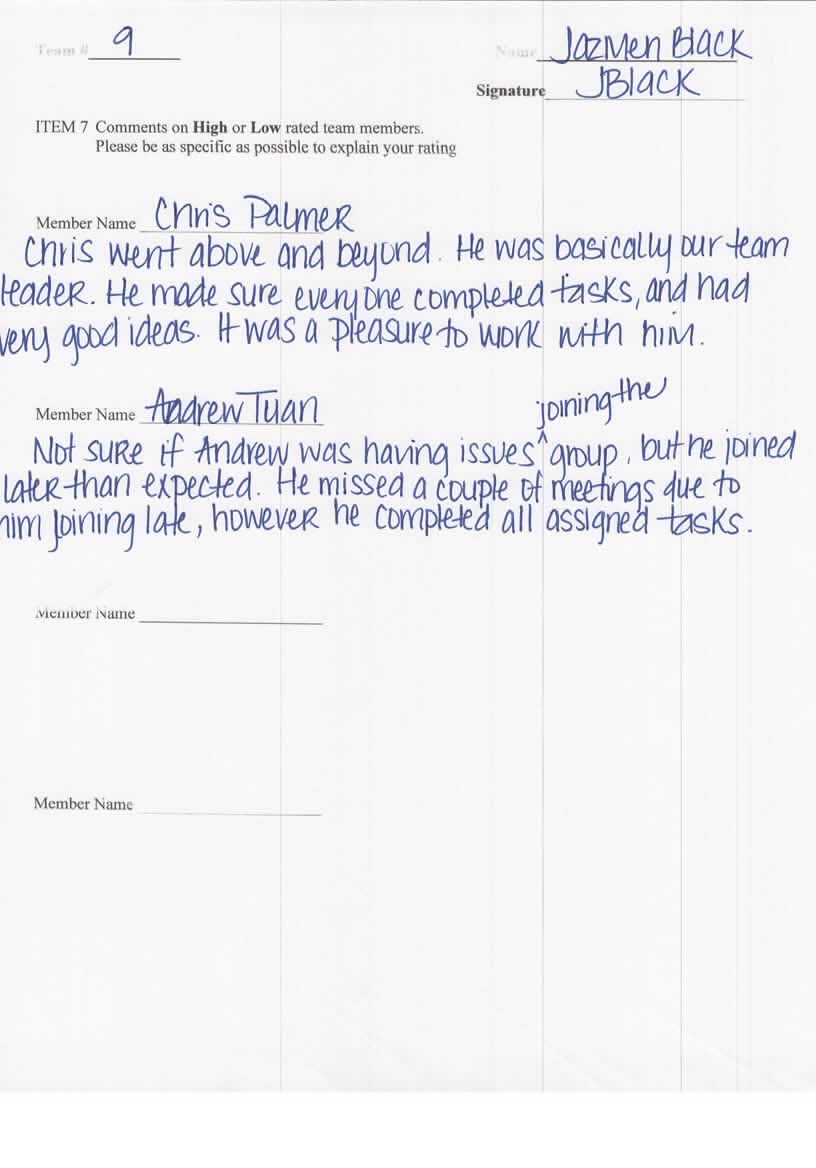 Team # 9 Name JazMen Black
Signature JBlack
ITEM 7 Comments on High or Low rated team members.
Please be as specific as possible to explain your rating
Member Name Chris Palmer
Chris went above and beyond. He was basically our team
leader. He made sure everyone completed tasks, and had
very good ideas. It was a pleasure to work with him.
Member Name Andrew Tuan
joining the
Not sure if Andrew was having issues ^ group, but he joined
later than expected. He missed a couple of meetings due to
him joining late, however he completed all assigned tasks.
Member Name
Member Name